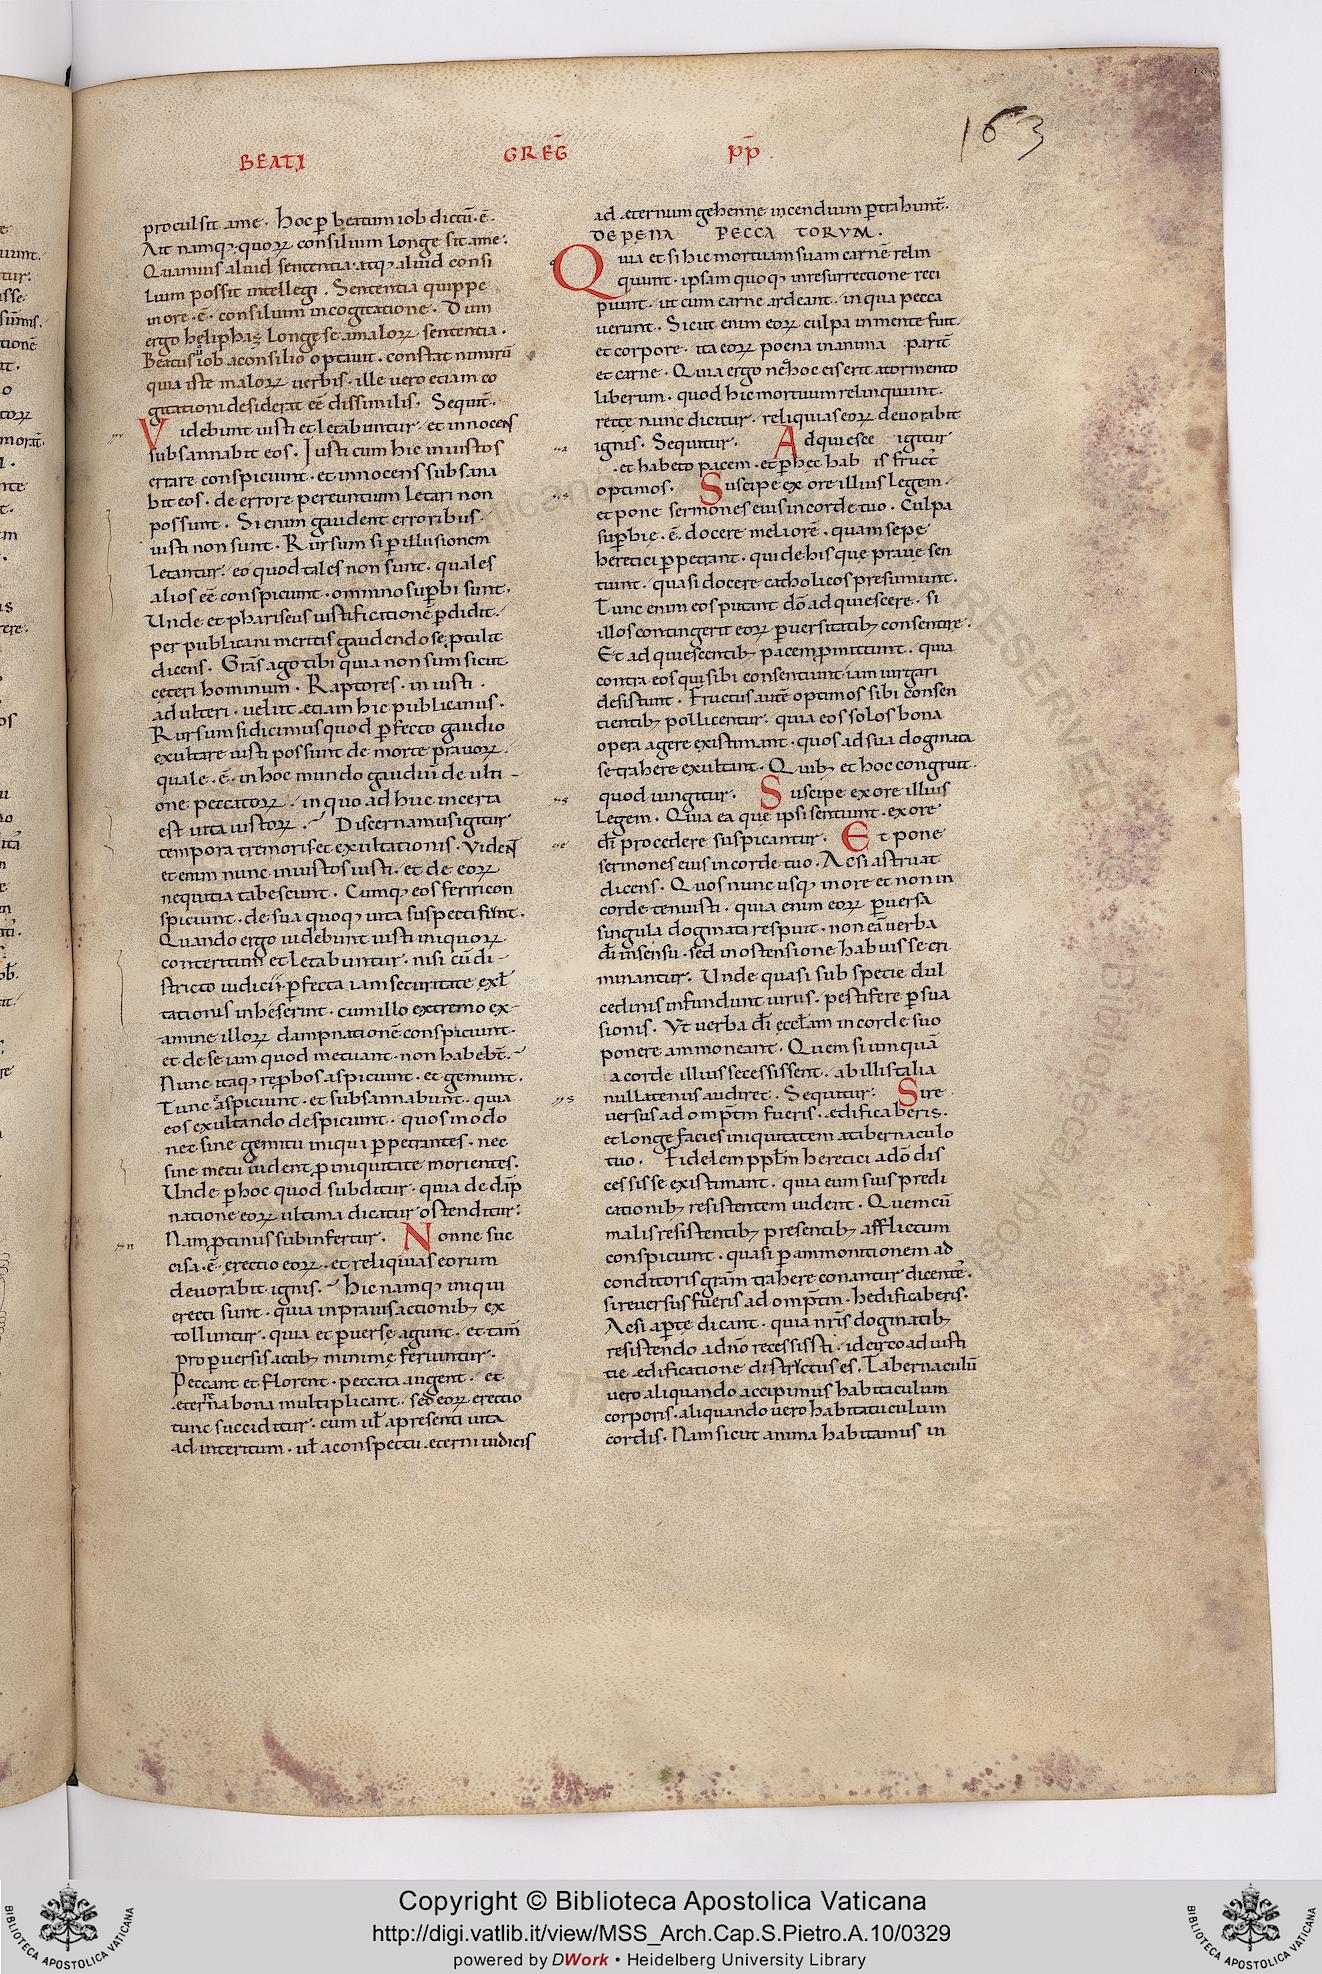 163
BEATI GREḠ P̄P̄.
procul sit a me. hoc ꝑ beatum iob dictū. ē.
Ait namq;. quoꝝ consilium longe sit a me.
Quamuis aliud sententia. atq; aliud consi
lium possit intellegi. Sententia quippe
in ore. ē. consilium in cogitatione. Dum
ergo heliphaz longe se a maloꝝ sententia.
Beatus iob a consilio optauit. constat nimirū
quia iste maloꝝ uerbis. ille uero etiam co
gitationi desiderat eē dissimilis. Sequit̄.
Videbunt iusti et letabuntur. et innocens
subsannabit eos. Iusti cum hic iniustos
errare conspiciunt. et innocens subsana
bit eos. de errore pereuntium letari non
possunt. Si enim gaudent erroribus.
iusti non sunt. Rursum si ꝑ illusionem
letantur. eo quod tales non sunt. quales
alios eē conspiciunt. omnino suꝑbi sunt.
Unde et phariseus iustificationē ꝑdidit.
per publicani meritis gaudendo se p̄tulit
dicens. Grās ago tibi quia non sum sicut
cęteri hominum. Raptores. iniusti.
adulteri. uelut etiam hic publicanus.
Rursum si dicimus quod ꝑfecto gaudio
exultare iusti possunt de morte prauoꝝ.
quale. ē. in hoc mundo gaudiū de ulti-
one peccatoꝝ. in quo adhuc incerta
est uita iustoꝝ. Discernamus igitur
tempora tremoris et exultationis. Viden̄t
et enim nunc iniustos iusti. et de eoꝝ
nequitia tabescunt. Cumq; eos feriri con
spiciunt. de sua quoq; uita suspecti fiunt.
Quando ergo uidebunt iusti iniquoꝝ
interitum et letabuntur. nisi cū di-
stricto iudici. ꝑfecta iam securitate exul̄
tationis inheserint. cum illo extremo ex-
amine illoꝝ dampnationē conspiciunt.
et de se iam quod metuant. non habebt̄.
Nunc itaq; reꝓbos aspiciunt. et gemunt.
Tunc aspiciunt. et subsannabunt. quia
eos exultando despiciunt. quos modo
nec sine gemitu iniqui ꝑpetrantes. nec
sine metu uident ꝓ iniquitate morientes.
Unde ꝑ hoc quod subditur. quia de dāp
natione eoꝝ ultima dicatur ostenditur.
Nam ꝓtinus subinfertur. Nonne suc
cisa. ē. erectio eoꝝ. et reliquias eorum
deuorabit ignis. hic namq; iniqui
erecti sunt. quia in prauis actionib; ex
tolluntur. quia et ꝑuerse agunt. et tam̄
pro ꝑuersis actib; minime feriuntur.
Peccant et florent. peccata augent. et
eterna bona multiplicant. sed eoꝝ erectio
tunc succiditur. cum ul̄ a presenti uita
ad interitum. ul̄ a conspectu eterni iudicis
ad eternum gehenne incendium ꝑtrahunt̄.
DE PENA PECCATORVM.
Quia et si hic mortuam suam carnē relin
quunt. ipsam quoq; in resurrectione reci
piunt. ut cum carne ardeant. in qua pecca
uerunt. Sicut enim eoꝝ culpa in mente fuit
et corpore. ita eoꝝ poena in anima parit̄
et carne. Quia ergo nec hoc eis erit a tormento
liberum. quod hic mortuum relinquunt.
recte nunc dicitur. reliquias eoꝝ deuorabit
ignis. Sequitur. Adquiesce igitur
. et habeto pacem. et ꝑ hec hab is fruct̄
optimos. Suscipe ex ore illius legem.
et pone sermones eius in corde tuo. Culpa
suꝑbie. ē. docere meliorē. quam sepe
heretici ꝑpetrant. qui de his que praue sen
tiunt. quasi docere catholicos presumunt.
Tunc enim eos putant dō adquiescere. si
illos contingerit eoꝝ ꝑuersitatib; consentire.
Et adquiescentib; pacem ꝓmittunt. quia
contra eos qui sibi consentiunt iam iurgari
desistunt. Fructus autē optimos sibi consen
tientib; pollicentur. quia eos solos bona
opera agere existimant. quos ad sua dogmata
se trahere exultant. Quib; et hoc congruit.
quod iungitur. Suscipe ex ore illius
legem. Quia ea que ipsi sentiunt. ex ore
dī procedere suspicantur. Et pone
sermones eius in corde tuo. Acsi astruat
dicens. Quos nunc usq; in ore et non in
corde tenuisti. quia enim eoꝝ ꝑuersa
singula dogmata respuit. non eā uerba
dī in sensu. sed in ostensione habuisse cri
minantur. Unde quasi sub specie dul
cedinis infundunt uirus. pestifere ꝑsua
sionis. Vt uerba dī eccl̄am in corde suo
ponere ammoneant. Quem si umquā
a corde illius secessissent. ab illis talia
nullatenus audiret. Sequitur. Si re
uersus ad omp̄tm fueris. edificaberis.
et longe facies iniquitatem a tabernaculo
tuo. Fidelem ppl̄m heretici a dō dis
cessisse existimant. quia eum suis predi
cationib; resistentem uident. Quem cū
malis resistentib; presentib; afflictum
conspiciunt. quasi ꝑ ammonitionem ad
conditoris grām trahere conantur dicentē.
si reuersus fueris ad omp̄tm. hedificaberis.
Acsi aꝑte dicant. quia nr̄is dogmatib;
resistendo a dn̄o recessisti. idcirco ad iusti
tie edificatione districtus es. Tabernaculū
uero aliquando accipimus habitaculum
corporis. aliquando uero habitatuculum
cordis. Nam sicut anima habitamus in
Copyright © Biblioteca Apostolica Vaticana
http://digi.vatlib.it/view/MSS_Arch.Cap.S.Pietro.A.10/0329
powered by DWork • Heidelberg University Library
BIBLIOTECA APOSTOLICA VATICANA
BIBLIOTECA APOSTOLICA VATICANA